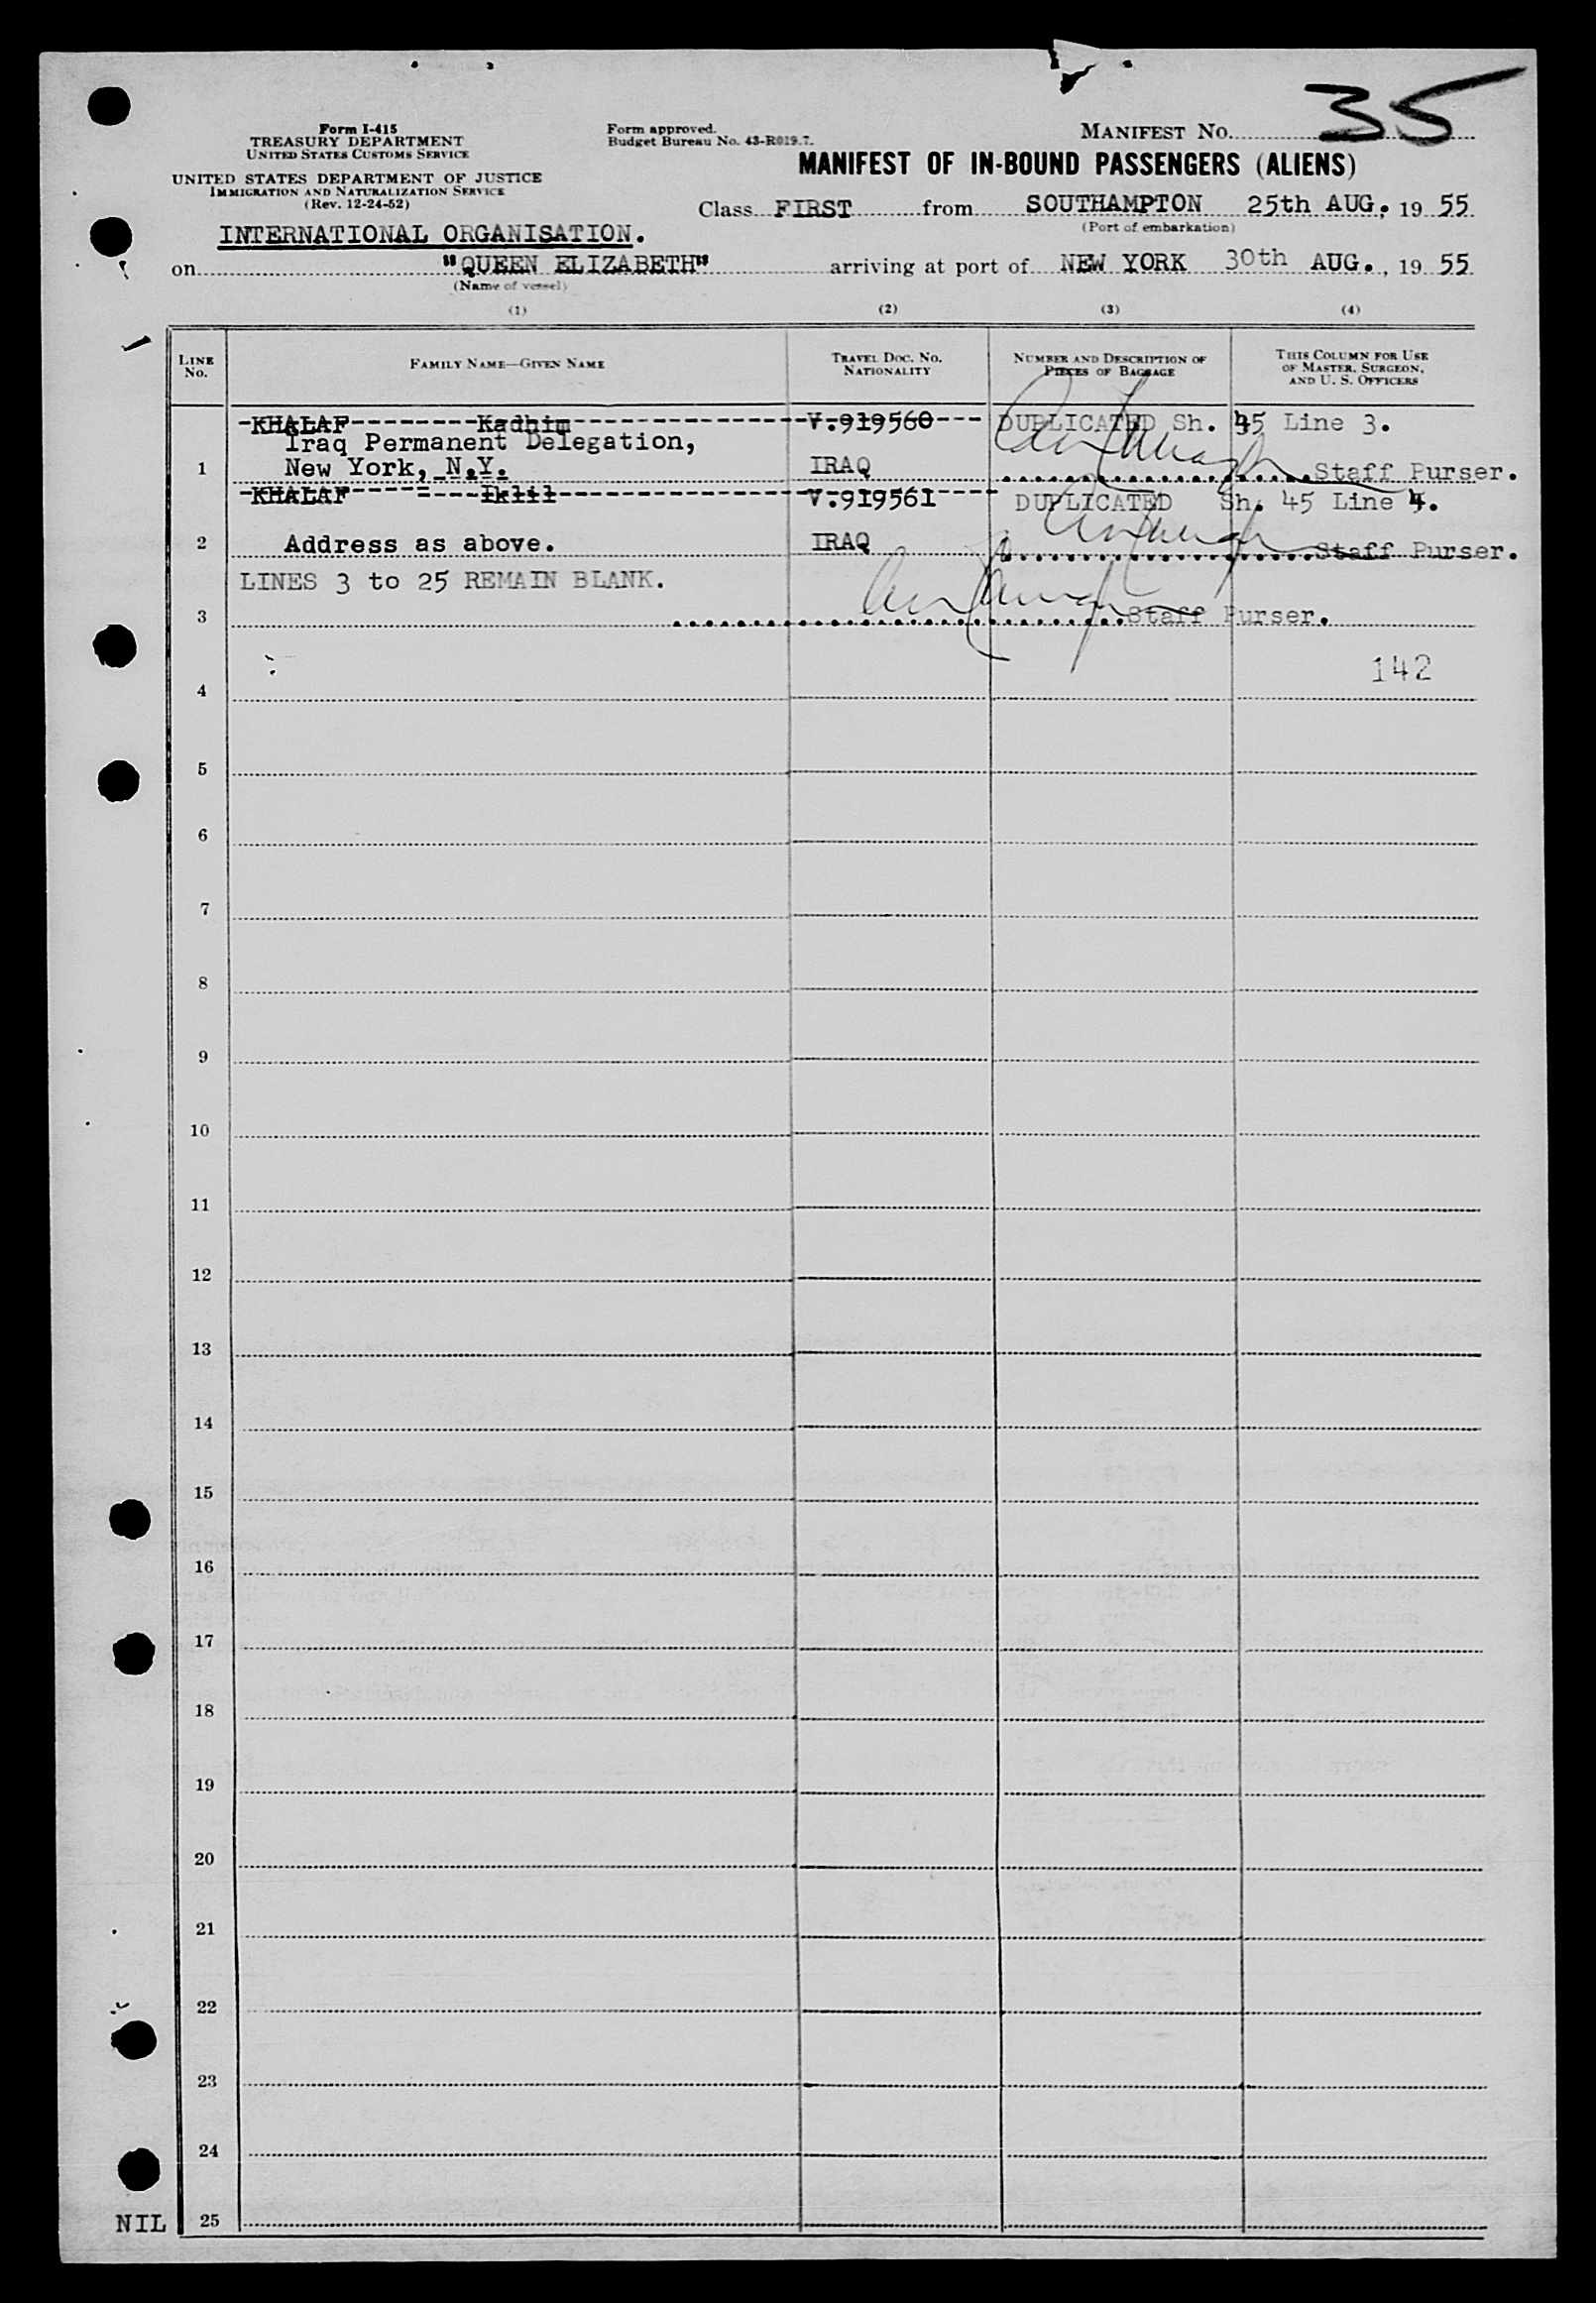 35
Form I-415
TREASURY DEPARTMENT
UNITED STATES CUSTOMS SERVICE
UNITED STATES DEPARTMENT OF JUSTICE
IMMIGRATION AND NATURALIZATION SERVICE
(Rev. 12-24-52)
Form approved.
Budget Bureau No. 43-R019.7.
MANIFEST No.
MANIFEST OF IN-BOUND PASSENGERS (ALIENS)
Class FIRST from SOUTHAMPTON 25th AUG., 19 55
(Port of embarkation)
INTERNATIONAL ORGANISATION.
on "QUEEN ELIZABETH" arriving at port of NEW YORK 30th AUG., 19 55
(Name of vessel)
(1) (2) (3) (4)
LINE No. FAMILY NAME—GIVEN NAME TRAVEL DOC. No. NATIONALITY NUMBER AND DESCRIPTION OF PIECES OF BAGGAGE THIS COLUMN FOR USE OF MASTER, SURGEON, AND U. S. OFFICERS
KHALAF Kadhim V.919560 DUPLICATED Sh. 45 Line 3.
Iraq Permanent Delegation,
1 New York, N.Y. IRAQ Staff Purser.
KHALAF Iklil V.919561 DUPLICATED Sh. 45 Line 4.
2 Address as above. IRAQ Staff Purser.
LINES 3 to 25 REMAIN BLANK.
3 Staff Purser.
142
4
5
6
7
8
9
10
11
12
13
14
15
16
17
18
19
20
21
22
23
24
NIL 25